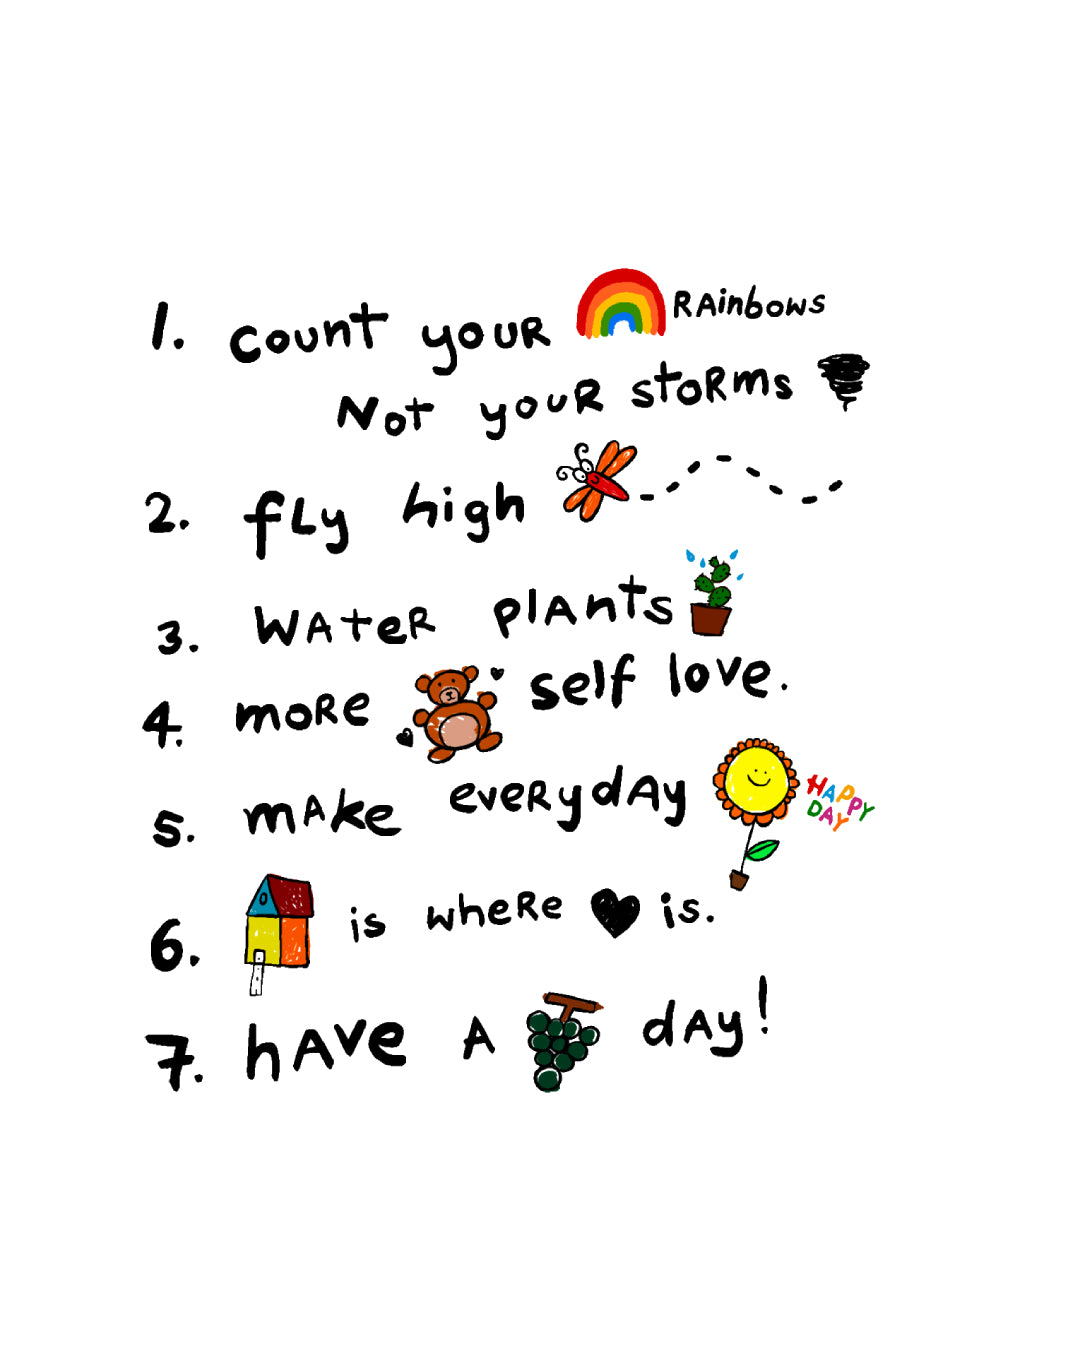 1. count your RAinbows
Not your storms
2. fly high
3. WAteR plAnts
4. moRe self love.
5. mAke eveRydAy HAPPY DAY
6. is wheRe is.
7. hAve A dAy!